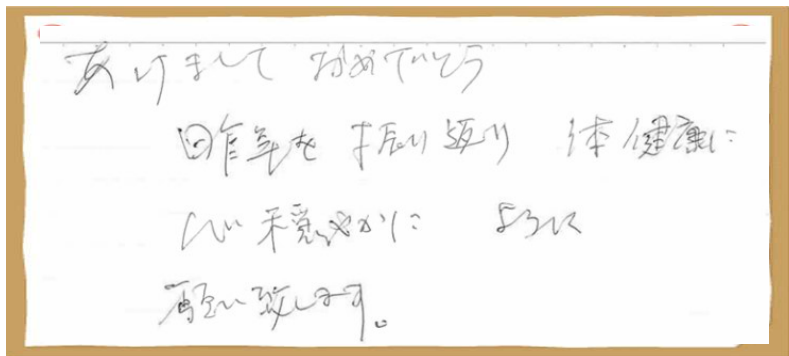 あけまして おめでとう
昨年を 振り返り 体健康に
心穏やかに ように
願い致します。